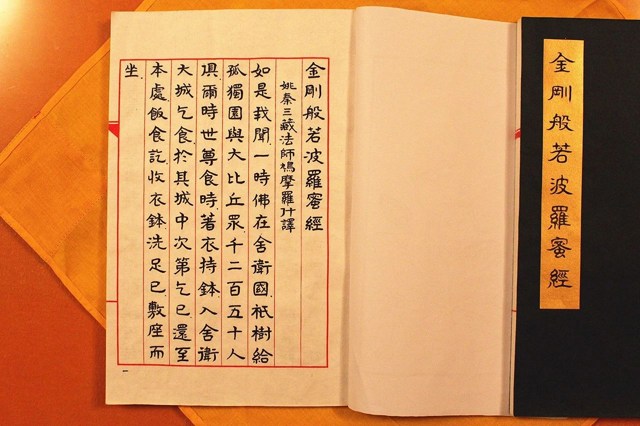 金剛般若波羅蜜經
金剛般若波羅蜜經
姚秦三藏法師鳩摩羅什譯
如是我聞一時佛在舍衛國祇樹給
孤獨園與大比丘眾千二百五十人
俱爾時世尊食時著衣持鉢入舍衛
大城乞食於其城中次第乞已還至
本處飯食訖收衣鉢洗足已敷座而
坐
一